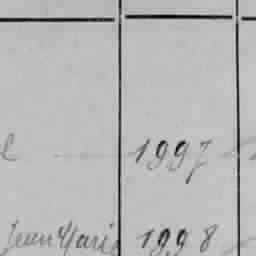 e 1997
Jean Marie 1998